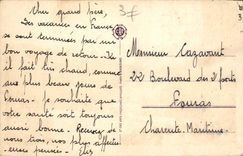 Cher grand père,
Les vacances en France
se sont terminées par un
bon voyage de retour. Ici
il fait très chaud, comme
au plus beau jour de
Fouras. Je souhaite que
votre santé soit toujours
aussi bonne. Recevez de
nous tous, nos plus affectu-
euses pensées.
3F
Monsieur Cazavant
22 Boulevard des 2 ports
Fouras
Charente Maritime